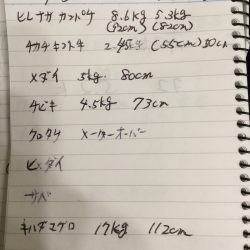 ヒレナガカンパチ 8.6kg 5.3kg
(92cm) (82cm)
2.45kg (55cm) 50cm
メダイ 5kg 80cm
チビキ 4.5kg 73cm
クロタチ メーターオーバー
ヒメダイ
サバ
キハダマグロ 17kg 112cm